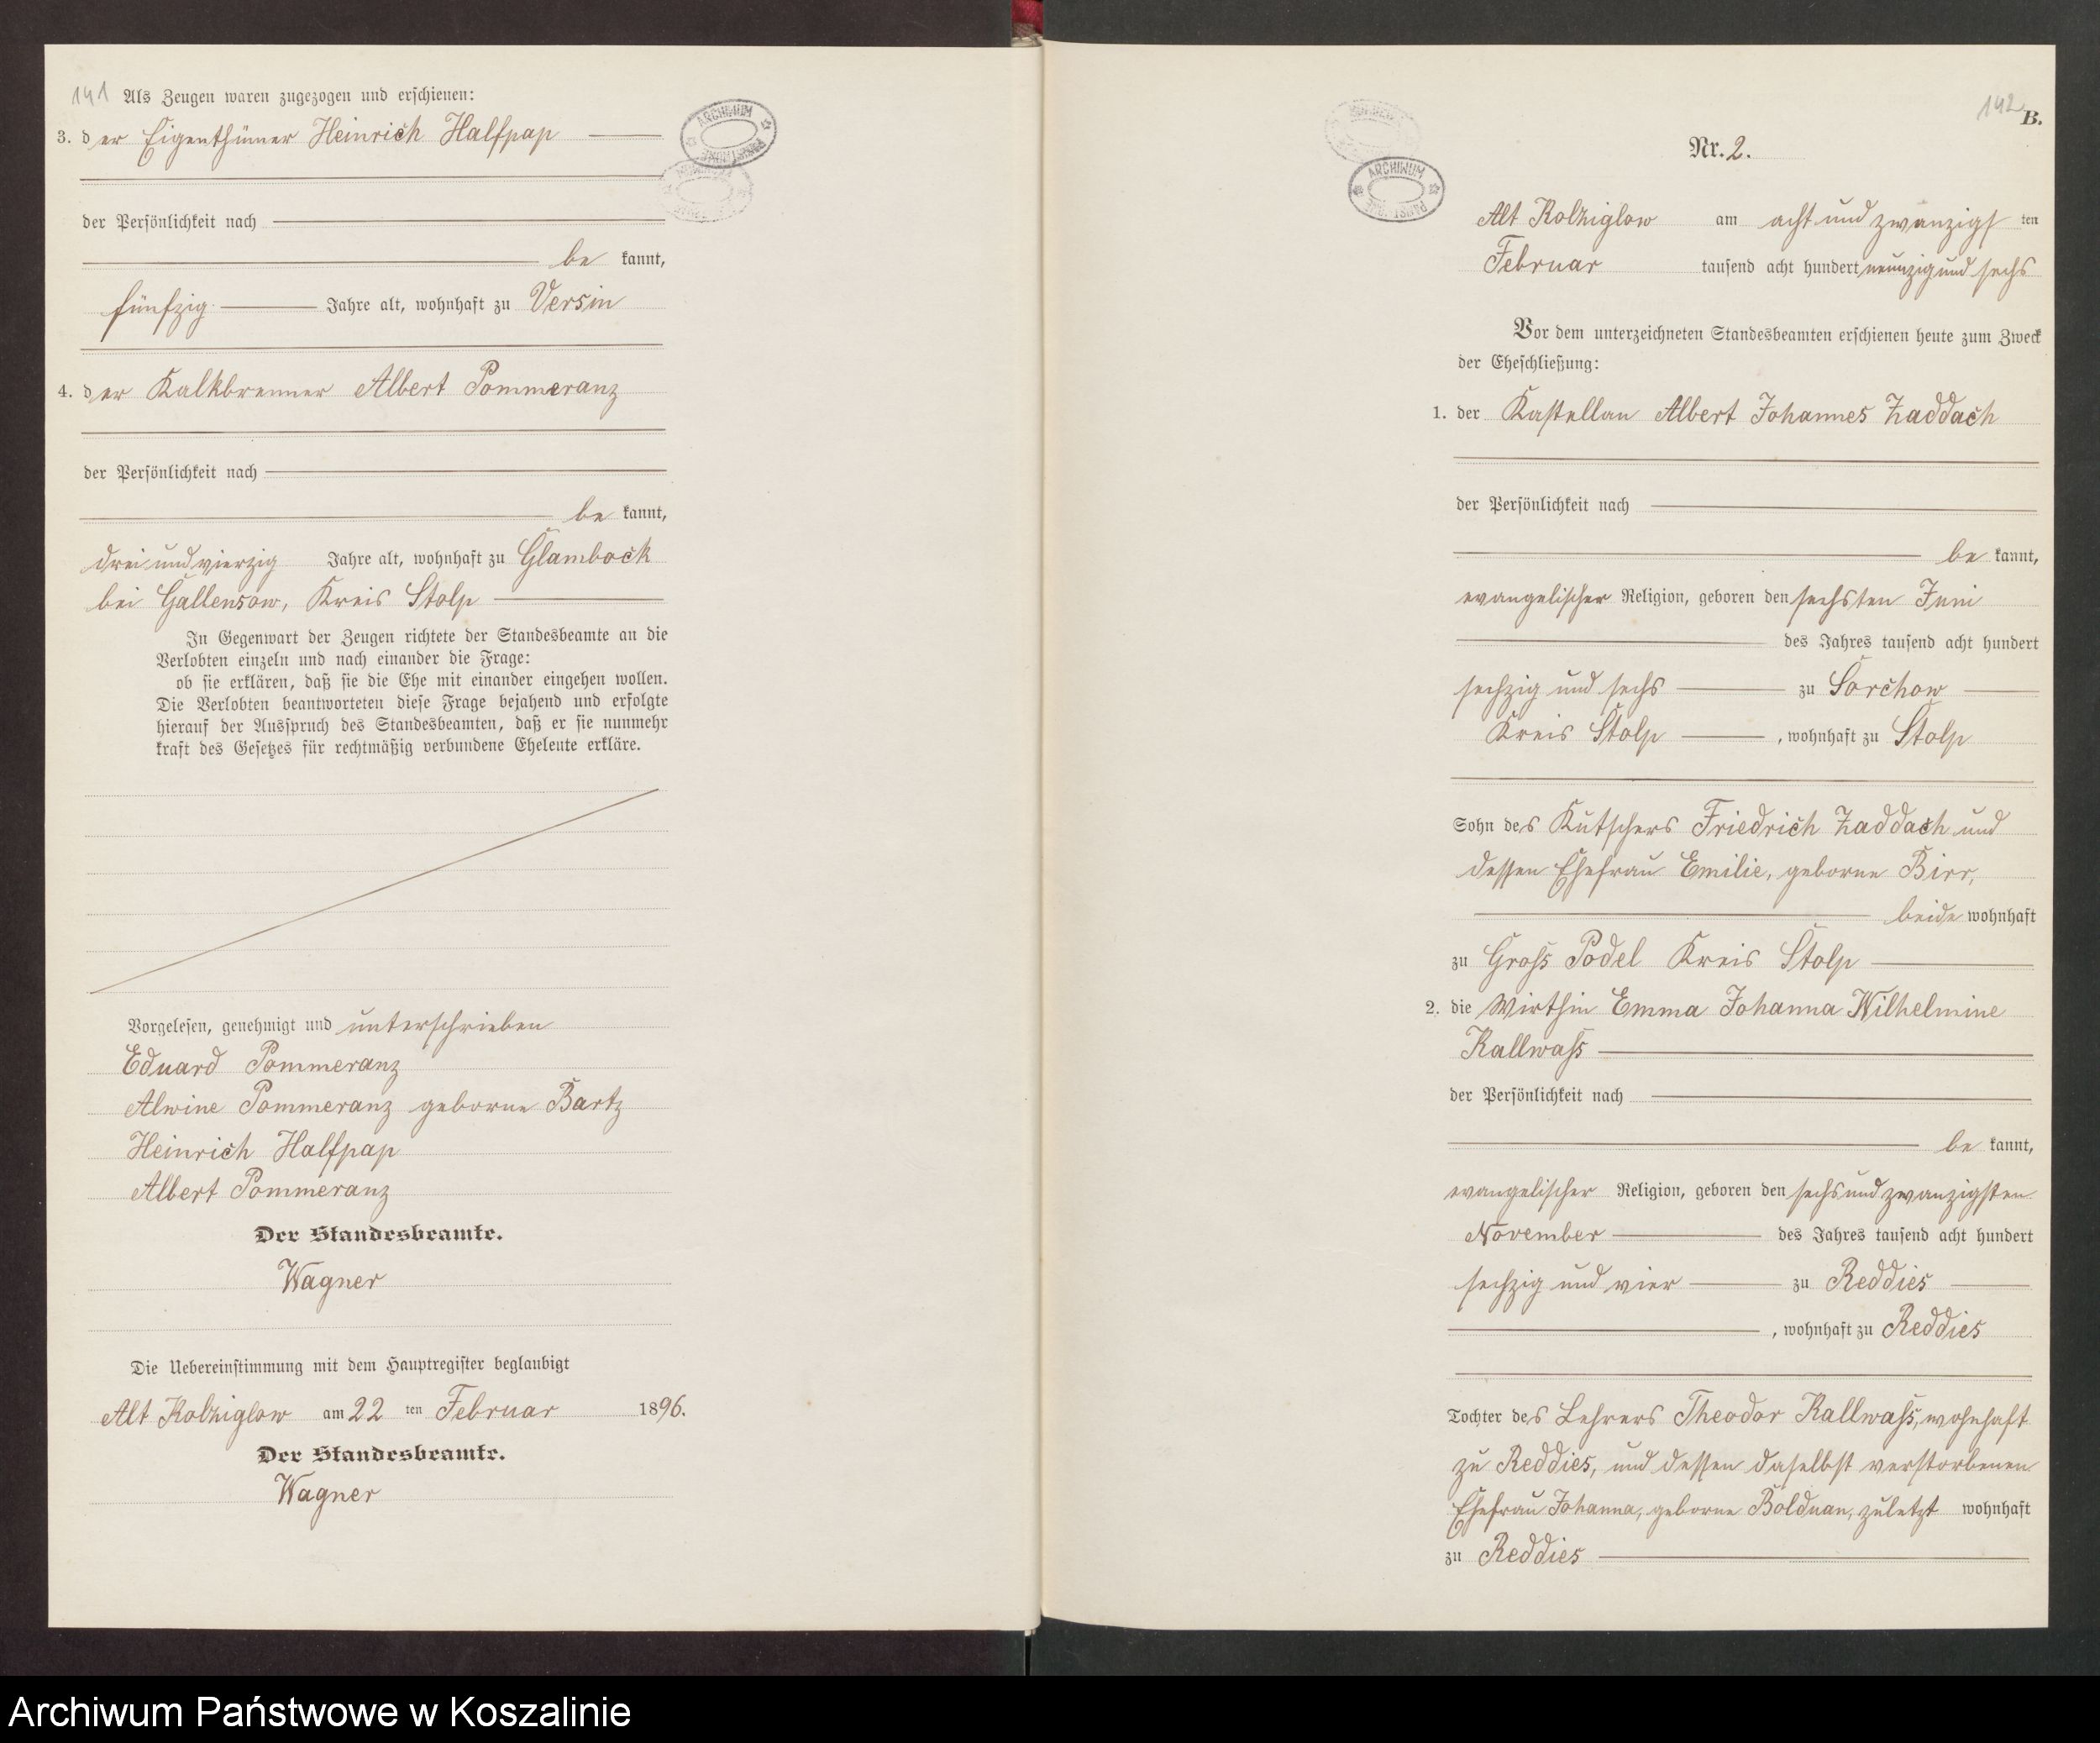 141 Als Zeugen waren zugezogen und erschienen:
3. der Eigenthümer Heinrich Halfpap
der Persönlichkeit nach
bekannt,
fünfzig Jahre alt, wohnhaft zu Versin
4. der Kalkbrenner Albert Pommeranz
der Persönlichkeit nach
bekannt,
drei und vierzig Jahre alt, wohnhaft zu Glambock
bei Gallensow, Kreis Stolp
In Gegenwart der Zeugen richtete der Standesbeamte an die
Verlobten einzeln und nach einander die Frage:
ob sie erklären, daß sie die Ehe mit einander eingehen wollen.
Die Verlobten beantworteten diese Frage bejahend und erfolgte
hierauf der Ausspruch des Standesbeamten, daß er sie nunmehr
kraft des Gesetzes für rechtmäßig verbundene Eheleute erkläre.
Vorgelesen, genehmigt und unterschrieben
Eduard Pommeranz
Alwine Pommeranz geborne Bartz
Heinrich Halfpap
Albert Pommeranz
Der Standesbeamte.
Wagner
Die Uebereinstimmung mit dem Hauptregister beglaubigt
Alt Kolziglow am 22 ten Februar 1896.
Der Standesbeamte.
Wagner
ARCHIWUM
142
B.
Nr. 2.
ARCHIWUM
Alt Kolziglow am acht und zwanzigsten
Februar tausend acht hundert neunzig und sechs
Vor dem unterzeichneten Standesbeamten erschienen heute zum Zweck
der Eheschließung:
1. der Kastellan Albert Johannes Zaddach
der Persönlichkeit nach
bekannt,
evangelischer Religion, geboren den sechsten Juni
des Jahres tausend acht hundert
sechzig und sechs zu Sorchow
Kreis Stolp, wohnhaft zu Stolp
Sohn des Kutschers Friedrich Zaddach und
dessen Ehefrau Emilie, geborne Birr,
beide wohnhaft
zu Groß Podel Kreis Stolp
2. die Wirthin Emma Johanna Wilhelmine
Kallwaß
der Persönlichkeit nach
bekannt,
evangelischer Religion, geboren den sechs und zwanzigsten
November des Jahres tausend acht hundert
sechzig und vier zu Reddies
, wohnhaft zu Reddies
Tochter des Lehrers Theodor Kallwaß, wohnhaft
zu Reddies, und dessen daselbst verstorbenen
Ehefrau Johanna, geborne Boldnan, zuletzt wohnhaft
zu Reddies
Archiwum Państwowe w Koszalinie